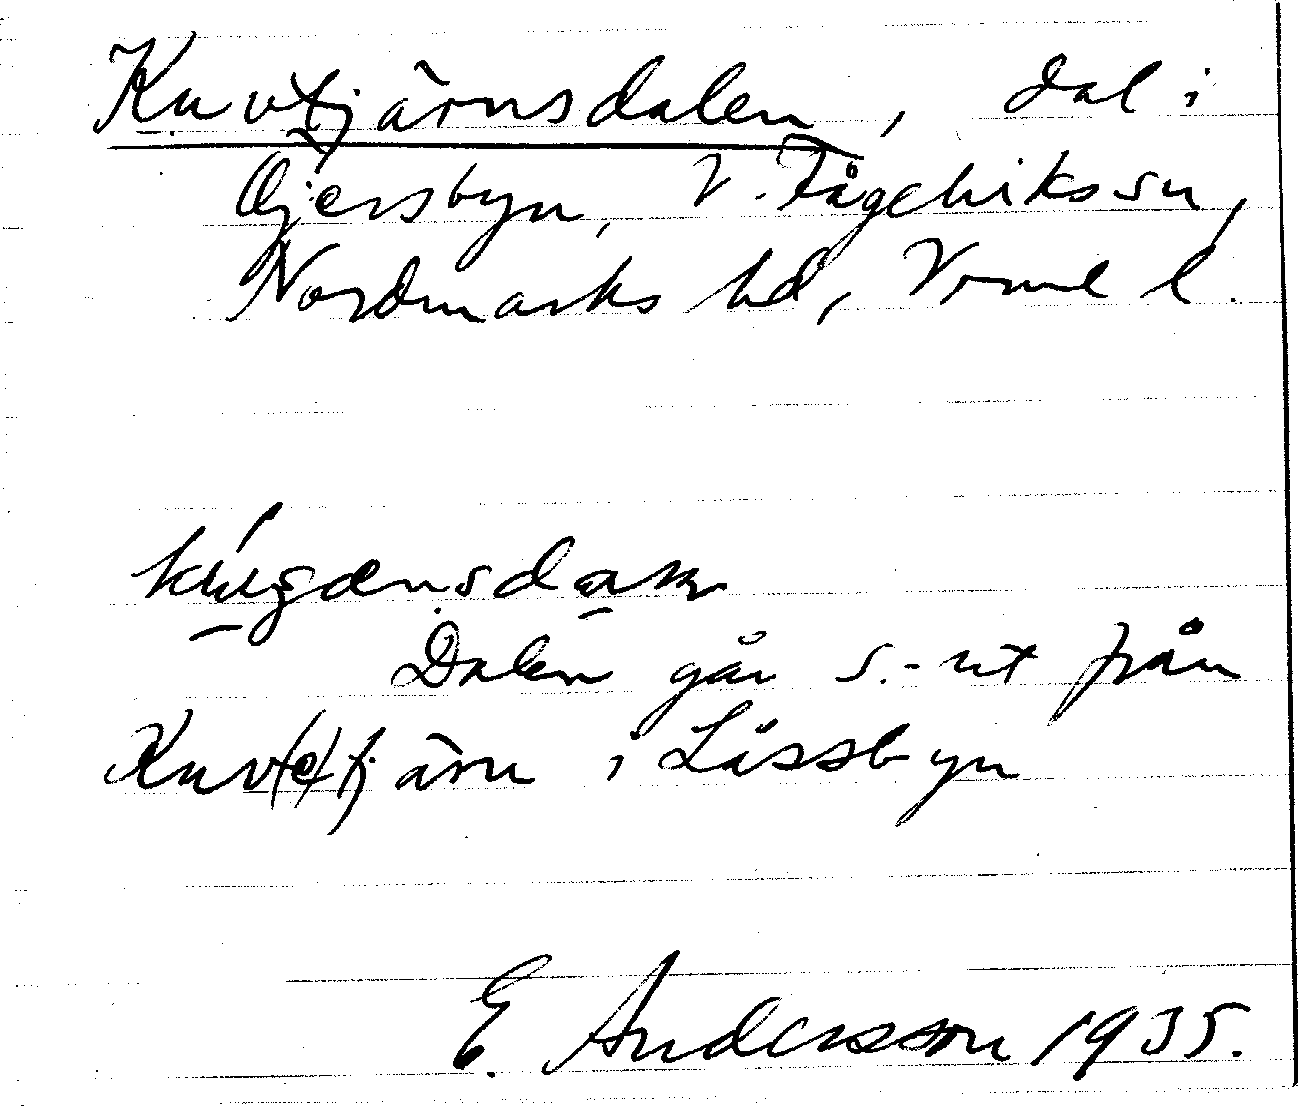 Kuvtjärnsdalen, dal i
Gjersbyn, V. Fågelvikssn,
Nordmarks hd, Vrml l.
Dalen går s.-ut från
Kuvt(e)tjärn i Lässbyn
E. Andersson 1935.